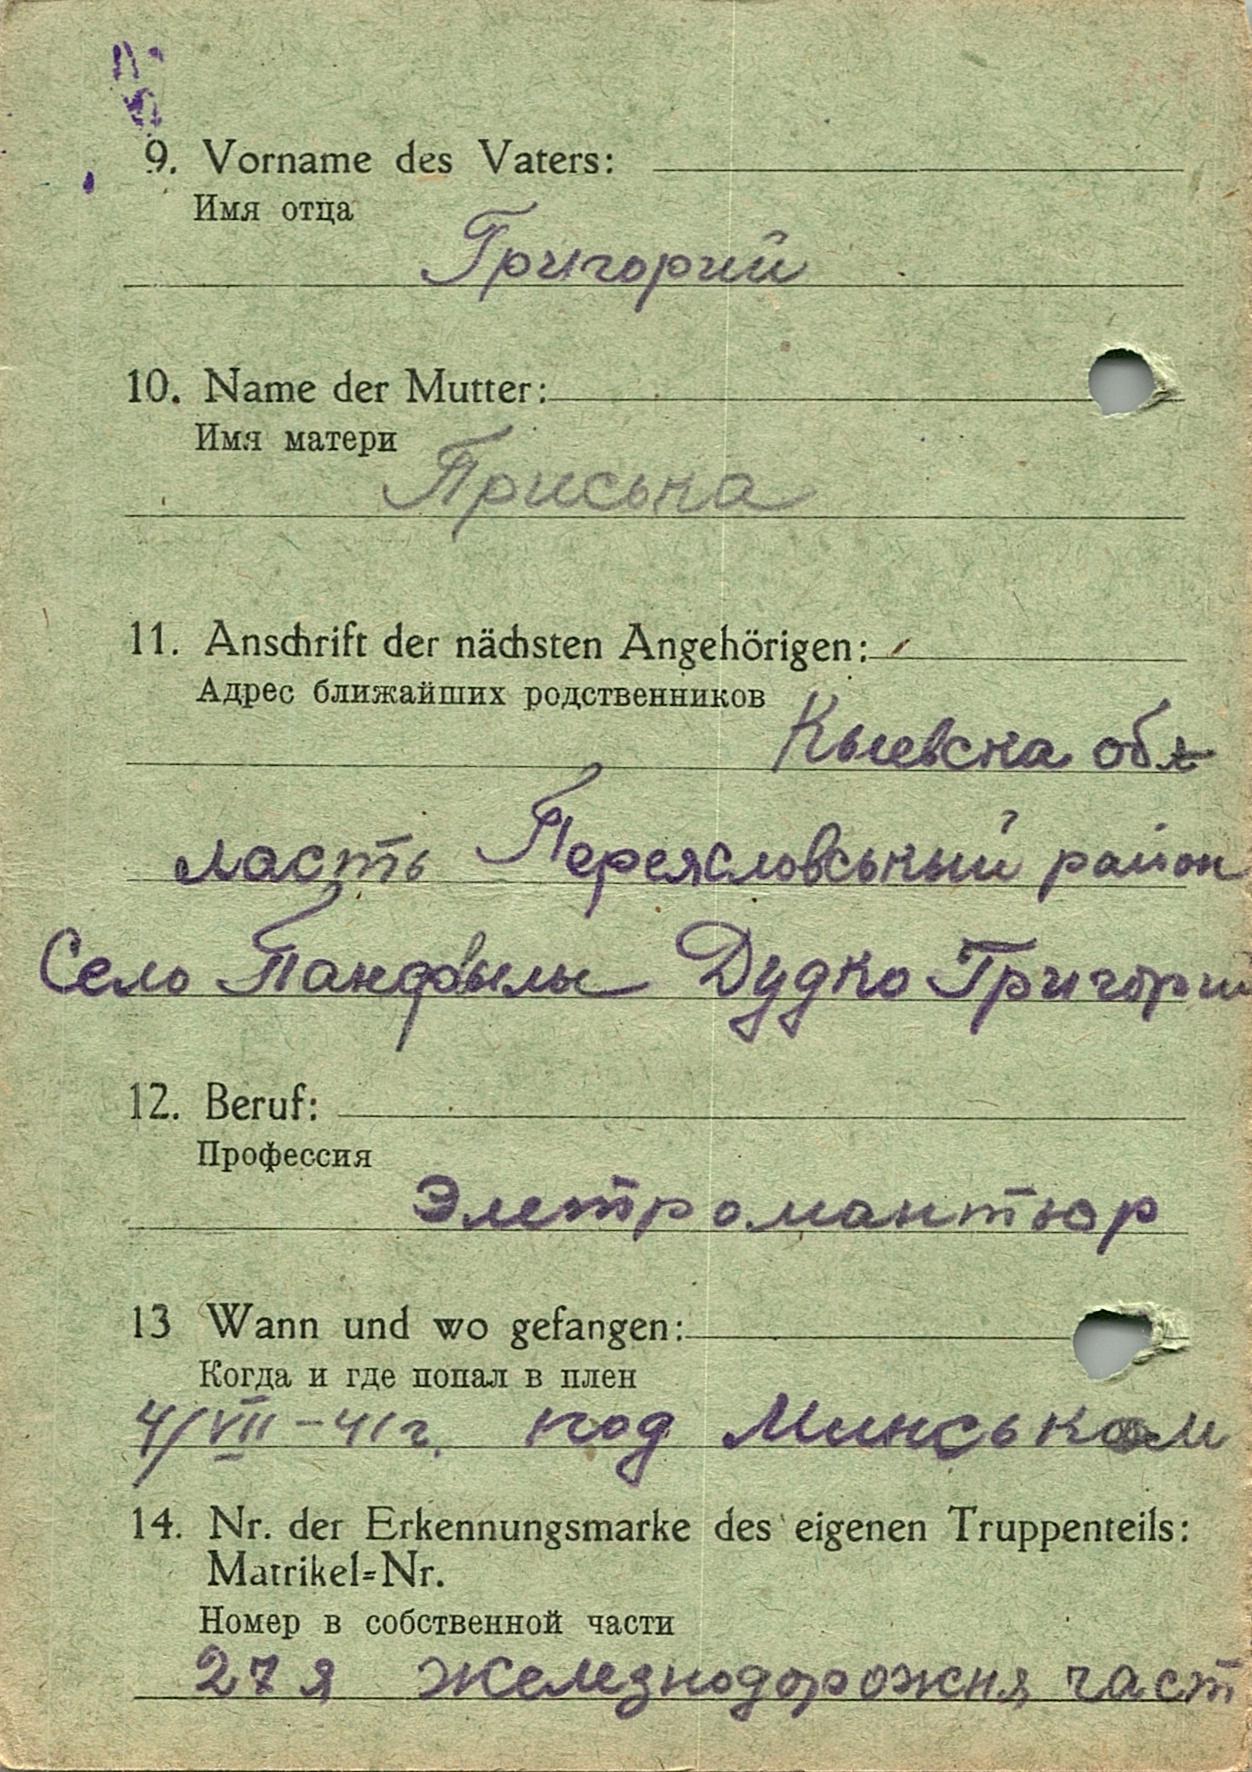 9. Vorname des Vaters:
Имя отца
Григорий
10. Name der Mutter:
Имя матери
Приська
11. Anschrift der nächsten Angehörigen:
Адрес ближайших родственников
Кыевска об
ласть Переясловський район
Село Панфылы Дудко Григорий
12. Beruf:
Профессия
Элетромантьор
13 Wann und wo gefangen:
Когда и где попал в плен
4/VII-41г. под Минськом
14. Nr. der Erkennungsmarke des eigenen Truppenteils:
Matrikel=Nr.
Номер в собственной части
27я железнодорожня част